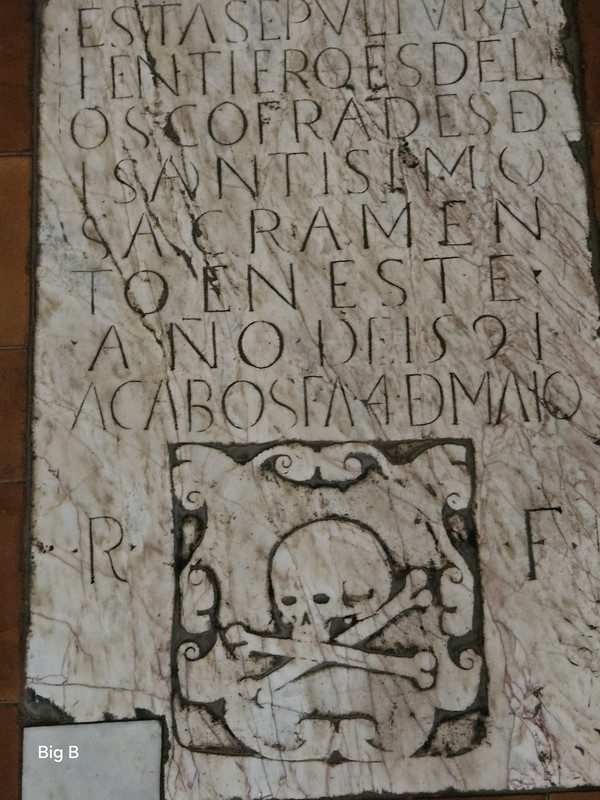 ESTASEPVLTVRA
IENTIEROESDEL
OSCOFRADESD
ISANTISIMO
SACRAMEN
TOENESTE
AÑODEIS91
ACABOSEA4DMAIO
R F
Big B